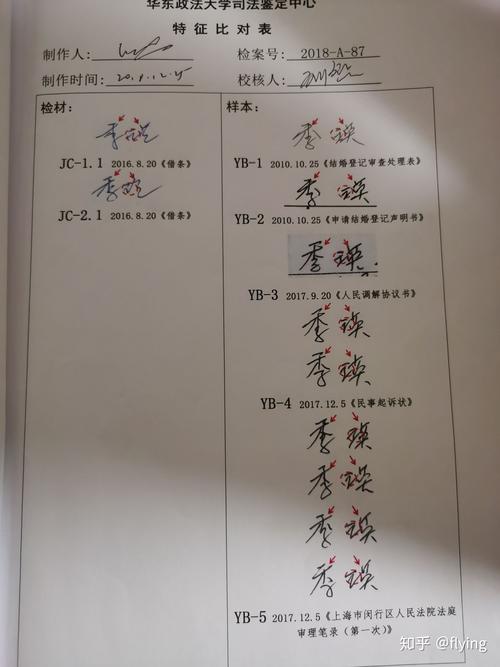 华东政法大学司法鉴定中心
特征比对表
制作人：
检案号： 2018-A-87
制作时间：
校核人：
检材：
样本：
季瑛
JC-1.1 2016.8.20《借条》
季瑛
JC-2.1 2016.8.20《借条》
季瑛
YB-1 2010.10.25《结婚登记审查处理表》
季瑛
YB-2 2010.10.25《申请结婚登记声明书》
季瑛
YB-3 2017.9.20《人民调解协议书》
季瑛
季瑛
YB-4 2017.12.5《民事起诉状》
季瑛
季瑛
季瑛
季瑛
YB-5 2017.12.5《上海市闵行区人民法院法庭
审理笔录（第一次）》
知乎 @flying